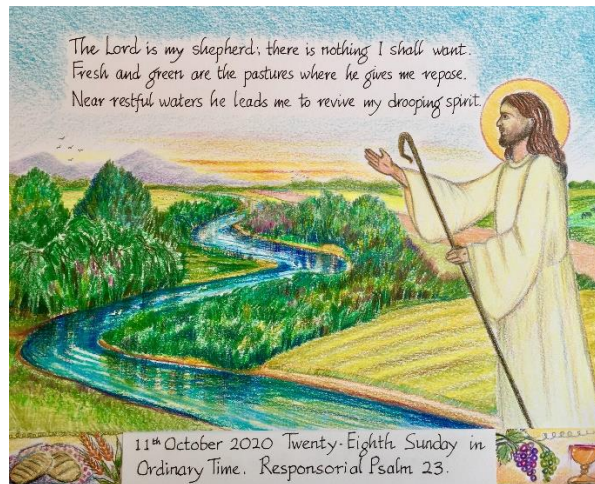 The Lord is my shepherd; there is nothing I shall want.
Fresh and green are the pastures where he gives me repose.
Near restful waters he leads me to revive my drooping spirit.
11th October 2020 Twenty-Eighth Sunday in
Ordinary Time. Responsorial Psalm 23.